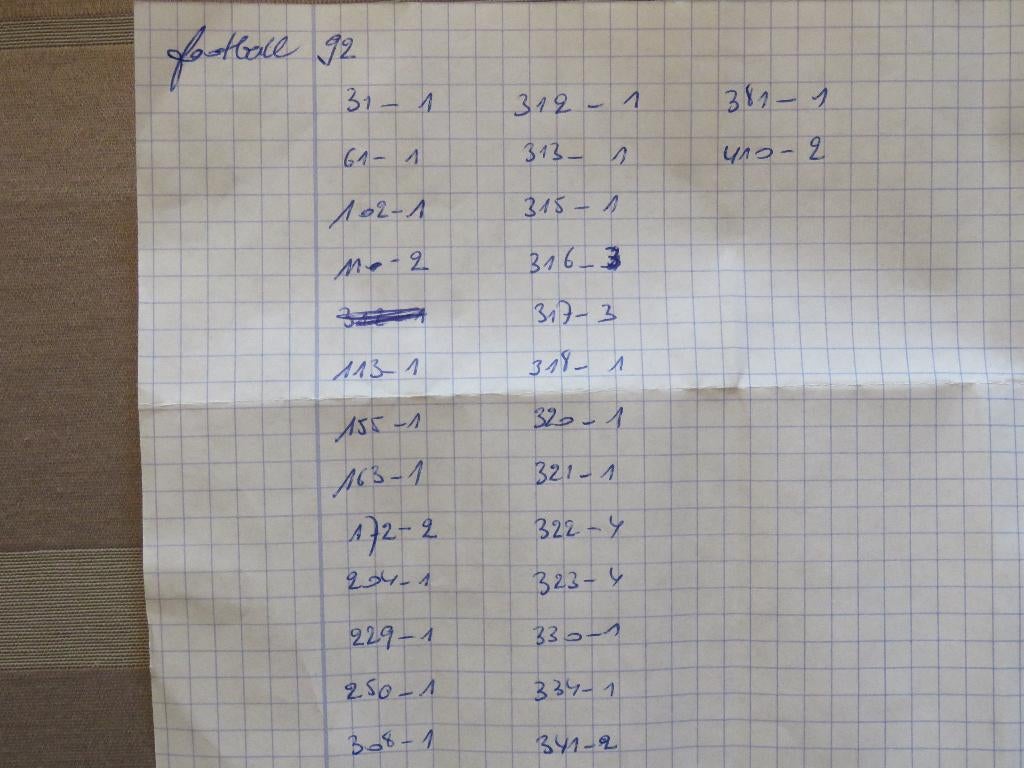 football 92
31 - 1 312 - 1 381 - 1
61 - 1 313 - 1 410 - 2
102 - 1 315 - 1
110 - 2 316 - 3
317 - 3
113 - 1 318 - 1
155 - 1 320 - 1
163 - 1 321 - 1
172 - 2 322 - 4
204 - 1 323 - 4
229 - 1 330 - 1
250 - 1 334 - 1
308 - 1 341 - 2